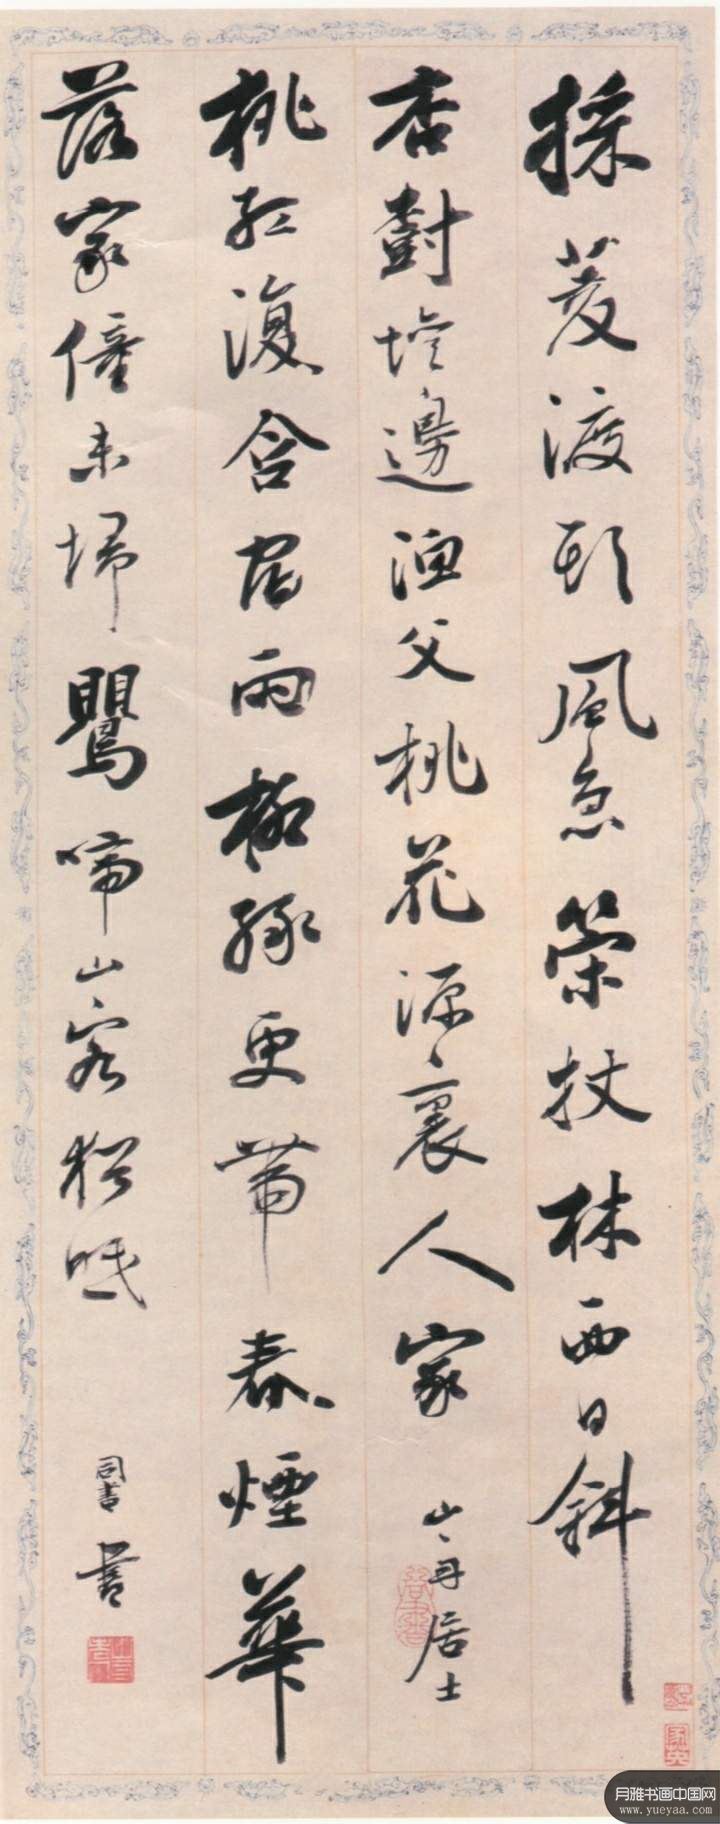 採菱渡頭風急策杖林西日斜
杏樹壇邊漁父桃花源裏人家
山舟居士
桃紅復含宿雨柳綠更帶春煙華
落家僮未埽鸎啼山客猶眠
同書書
月雅书画中国网
www.yueyaa.com